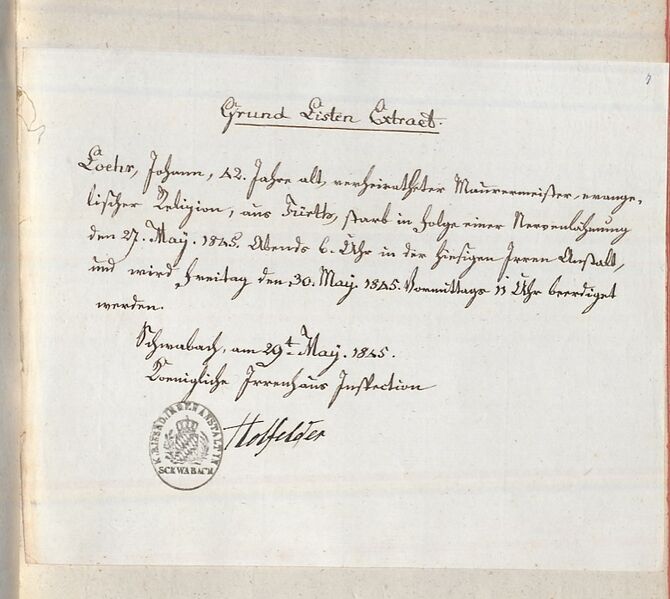 Grund Listen Extract.
Loehr, Johann, 42. Jahre alt, verheiratheter Maurermeister, evange-
lischer Religion, aus Fürth, starb in Folge einer Nervenlähmung
den 27. May. 1845. Abends 6. Uhr in der hiesigen Irren Anstalt,
und wird Freitag den 30. May. 1845. Vormittags 11 Uhr beerdiget
werden.
Schwabach, am 29t. May. 1845.
Koenigliche Irrenhaus Inspection
Holfelder
K. KREIS IRRENANSTALT IN
SCHWABACH